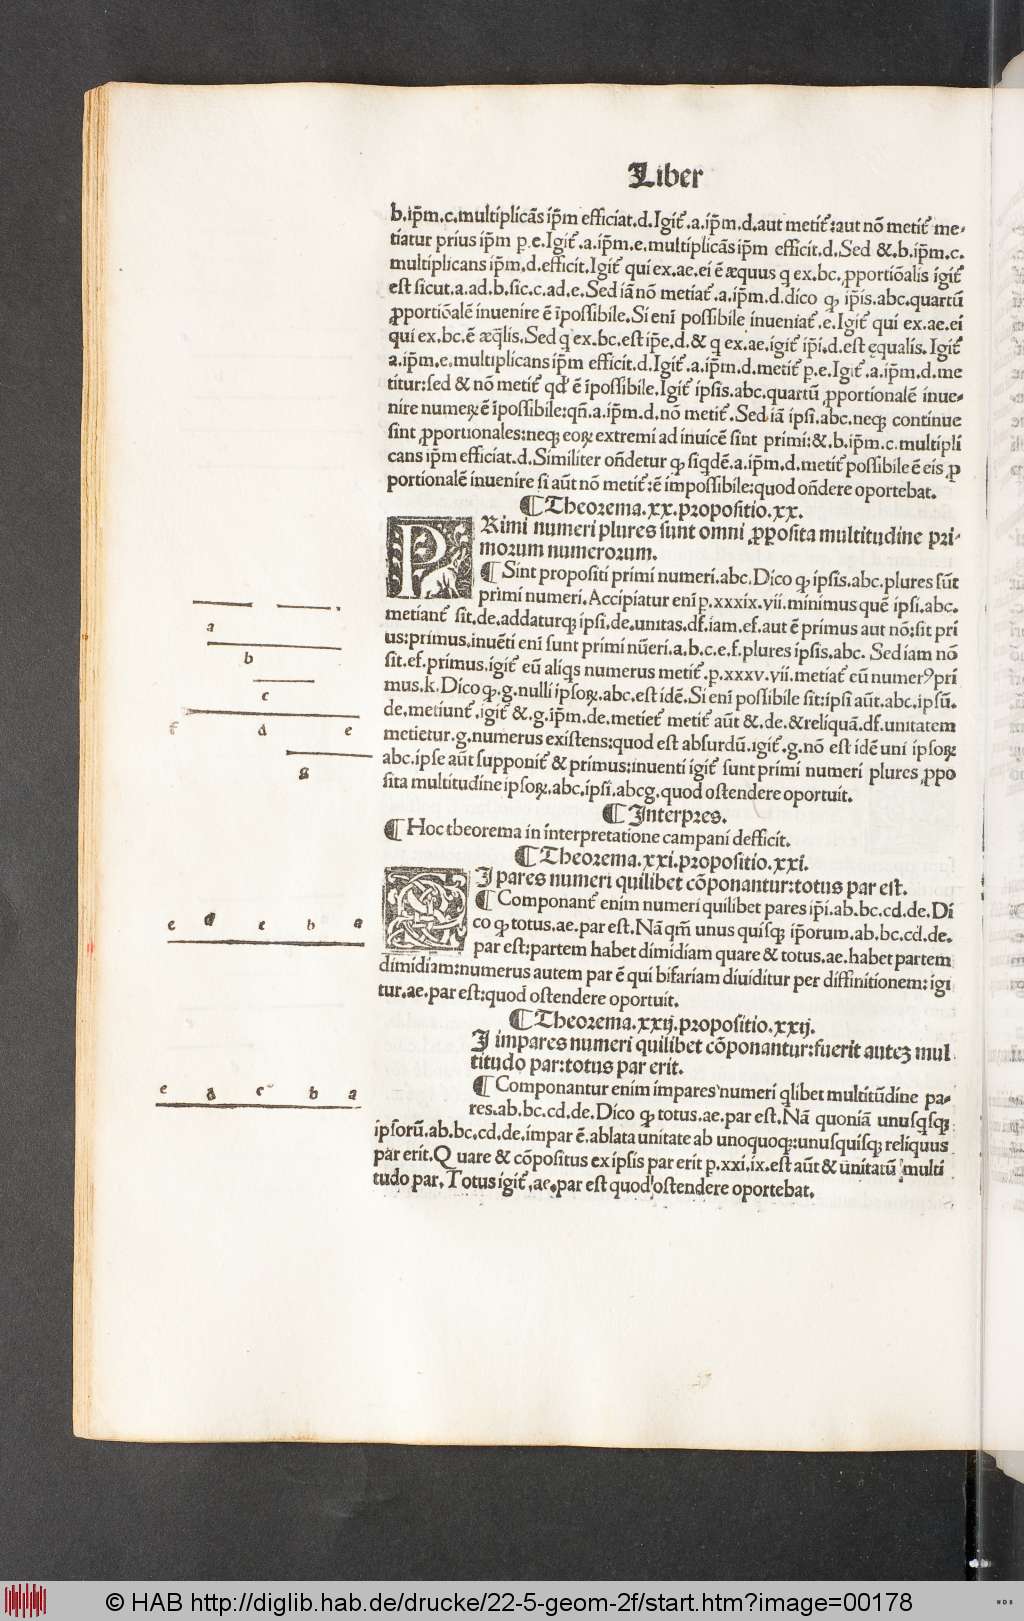 Liber
b.ip̃m.c.multiplicãs ip̃m efficiat.d.Igit᷑.a.ip̃m.d.aut metit᷑:aut nõ metit᷑ me-
tiatur prius ip̃m ꝑ.e.Igit᷑.a.ip̃m.e.multiplicãs ip̃m efficit.d.Sed &.b.ip̃m.c.
multiplicans ip̃m.d.efficit.Igit᷑ qui ex.ae.ei ẽ æquus q̃ ex.bc.ꝓportiõalis igit᷑
est sicut.a.ad.b.sic.c.ad.e.Sed iã nõ metiat᷑.a.ip̃m.d.dico ꝙ ip̃is.abc.quartũ
ꝓportiõalẽ inuenire ẽ ĩpossibile.Si eni᷑ possibile inueniat᷑.e.Igit᷑ qui ex.ae.ei
qui ex.bc.ẽ æq̃lis.Sed q̃ ex.bc.est ip̃e.d.& q̃ ex.ae.igit᷑ ip̃i.d.est ęqualis.Igit᷑
a.ip̃m.e.multiplicans ip̃m efficit.d.Igit᷑.a.ip̃m.d.metit᷑ ꝑ.e.Igit᷑.a.ip̃m.d.me
titur:sed & nõ metit᷑ qd᷑ ẽ ĩpossibile.Igit᷑ ipsis.abc.quartũ ꝓportionalẽ inue-
nire numeꝝ ẽ ĩpossibile:qñ.a.ip̃m.d.nõ metit᷑.Sed iã ipsi.abc.neqꝫ continue
sint ꝓportionales:neqꝫ eoꝝ extremi ad inuicẽ sint primi:&.b.ip̃m.c.multipli
cans ip̃m efficiat.d.Similiter oñdetur ꝙ siq̃dẽ.a.ip̃m.d.metit᷑ possibile ẽ eis ꝓ
portionalẽ inuenire si aũt nõ metit᷑:ẽ impossibile:quod oñdere oportebat.
¶Theorema.xx.propositio.xx.
PRimi numeri plures sunt omni ꝓposita multitudine pri-
morum numerorum.
¶Sint propositi primi numeri.abc.Dico ꝙ ipsis.abc.plures sũt
primi numeri.Accipiatur eni᷑ ꝑ.xxxix.vii.minimus quẽ ipsi.abc.
metiant᷑ sit.de.addaturqꝫ ipsi.de.unitas.df.iam.ef.aut ẽ primus aut nõ:sit pri
us:primus.inuẽti eni᷑ sunt primi nũeri.a.b.c.e.f.plures ipsis.abc. Sed iam nõ
sit.ef.primus.igit᷑ eũ aliq̃s numerus metit᷑.ꝑ.xxxv.vii.metiat᷑ eũ numerꝰ pri
mus.k.Dico ꝙ.g.nulli ipsoꝝ.abc.est idẽ.Si eni᷑ possibile sit:ipsi aũt.abc.ipsũ.
de.metiunt᷑.igit᷑ &.g.ip̃m.de.metiet᷑ metit᷑ aũt &.de.&reliquã.df.unitatem
metietur.g.numerus existens:quod est absurdũ.igit᷑.g.nõ est idẽ uni ipsoꝝ
abc.ipse aũt supponit᷑ & primus:inuenti igit᷑ sunt primi numeri plures ꝓpo
sita multitudine ipsoꝝ.abc.ipsi.abcg.quod ostendere oportuit.
¶Interpres.
¶Hoc theorema in interpretatione campani defficit.
¶Theorema.xxi.propositio.xxi.
SI pares numeri quilibet cõponantur:totus par est.
¶Componant᷑ enim numeri quilibet pares ip̃i.ab.bc.cd.de.Di
co ꝙ totus.ae.par est.Nã qm̃ unus quisqꝫ ip̃orum.ab.bc.cd.de.
par est:partem habet dimidiam quare & totus.ae.habet partem
dimidiam:numerus autem par ẽ qui bifariam diuiditur per diffinitionem: igi
tur.ae.par est:quod ostendere oportuit.
¶Theorema.xxij.propositio.xxij.
I impares numeri quilibet cõponantur:fuerit autez mul
titudo par:totus par erit.
¶Componantur enim impares numeri q̃libet multitũdine pa-
res.ab.bc.cd.de.Dico ꝙ totus.ae.par est.Nã quoniã unusq̃sqꝫ
ipsorũ.ab.bc.cd.de.impar ẽ.ablata unitate ab unoquoqꝫ:unusquisqꝫ reliquus
par erit.Quare & cõpositus ex ipsis par erit ꝑ.xxi.ix.est aũt & unitatũ multi
tudo par. Totus igit᷑.ae.par est quod ostendere oportebat.
a
b
c
f d e
g
e d c b a
e d c b a
© HAB http://diglib.hab.de/drucke/22-5-geom-2f/start.htm?image=00178